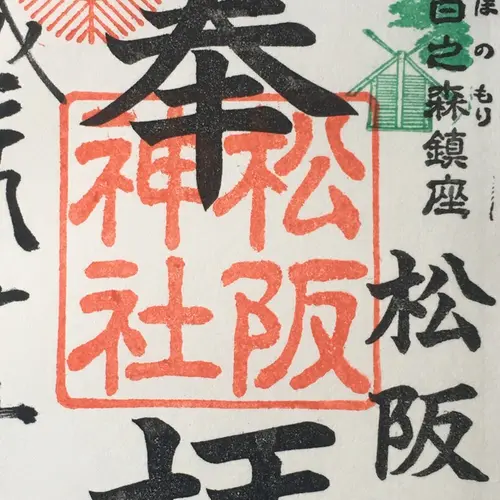 ほのもり
百之森鎮座
松阪
奉拝
松阪
神社